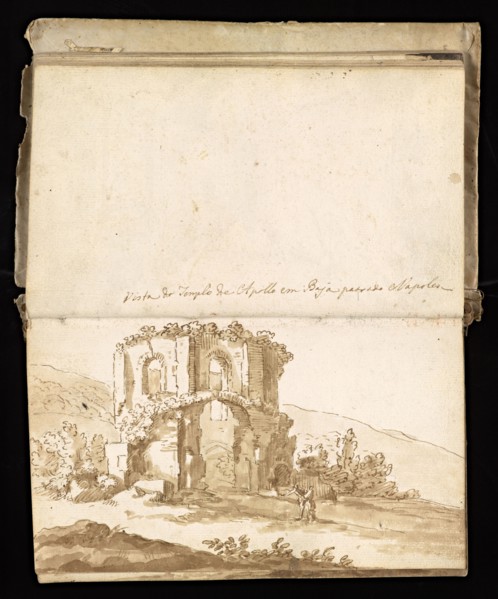 Vista do Temple de Apollo em Baja passado Napoles